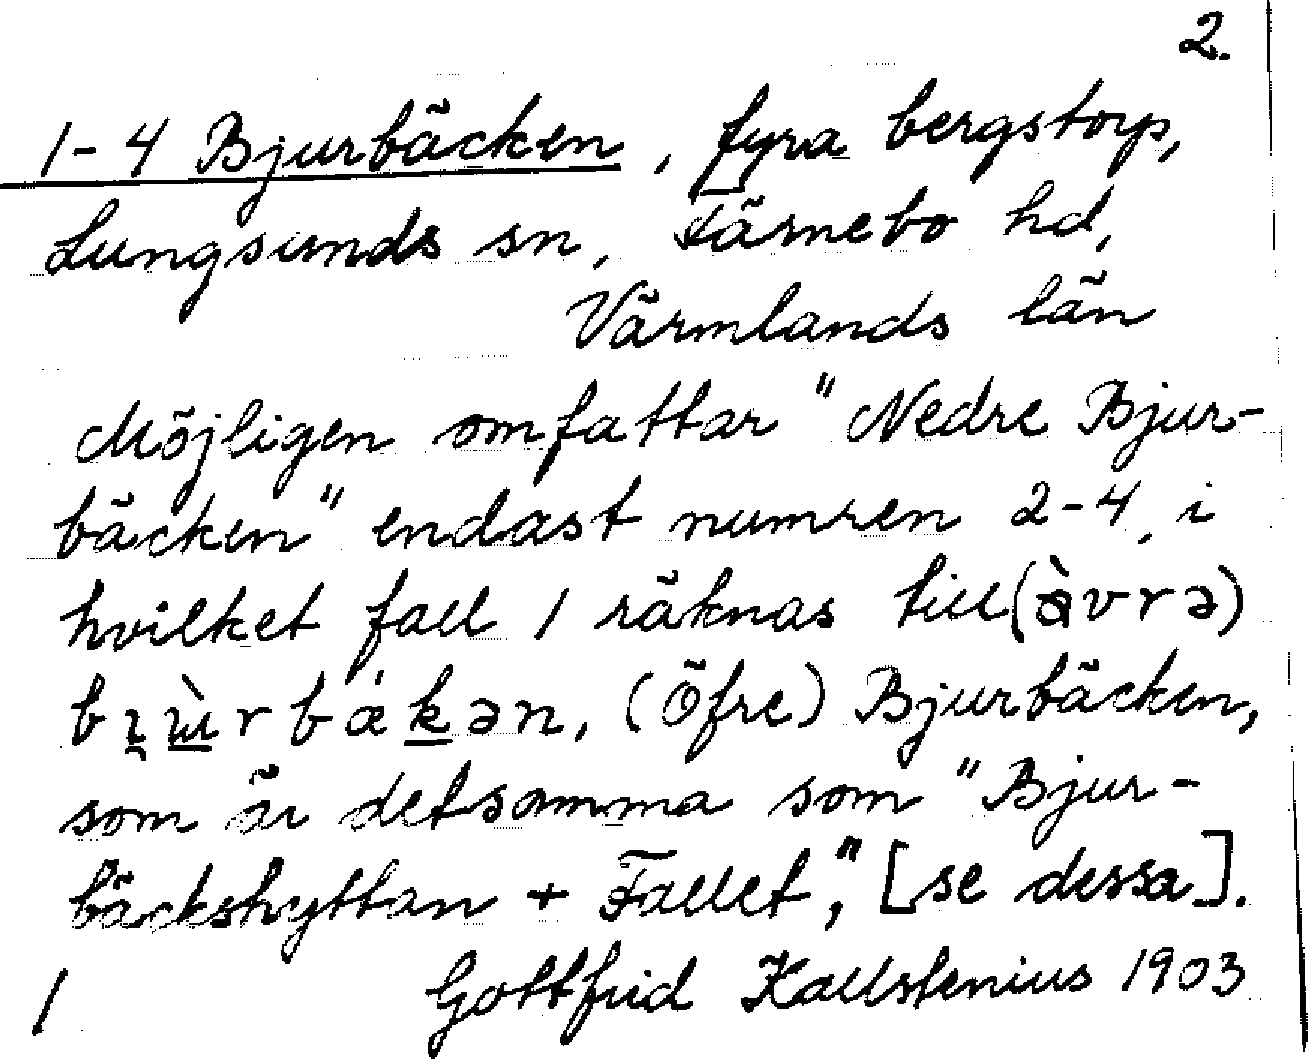 2.
1-4 Bjurbäcken, fyra bergstorp,
Lungsunds sn, Färnebo hd,
Värmlands län
Möjligen omfattar "Nedre Bjur-
bäcken" endast numren 2-4, i
hvilket fall 1 räknas till (
(Öfre) Bjurbäcken,
som är detsamma som "Bjur-
bäckshyttan + Fallet", [se dessa].
1 Gottfrid Kallstenius 1903